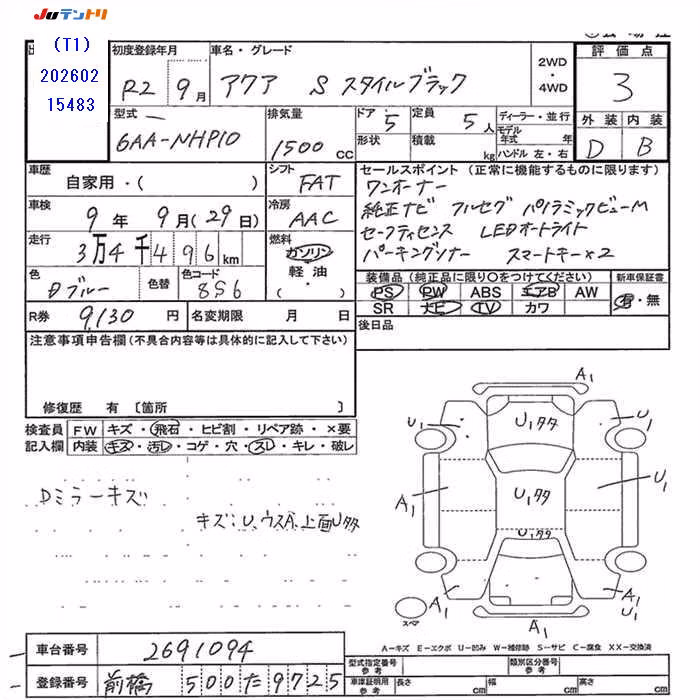 JUテントリ
(T1)
202602
15483
初度登録年月
R2 9月
車名・グレード
アクア S スタイルブラック
2WD
・
4WD
評価点
3
型式
6AA-NHP10
排気量
1500 CC
ドア・形状
5
定員
5人
積載
kg
ディーラー・並行
モデル年式 年
ハンドル 左・右
外装 内装
D B
車歴
自家用・( )
シフト
FAT
車検
9年 9月(29日)
冷房
AAC
走行
3万4千496km
燃料
ガソリン
軽油
( ・ )
色
Dブルー
色替
色コード
8S6
セールスポイント (正常に機能するものに限ります)
ワンオーナー
純正ナビ フルセグ パノラミックビューM
セーフティセンス LEDオートライト
パーキングソナー スマートキー×2
装備品 (純正品に限り○をつけてください)
PS PW ABS エアB AW
SR ナビ TV カワ
新車保証書
有・無
R券 9,130円
名変期限 月 日
後日品
注意事項申告欄 (不具合内容等は具体的に記入して下さい)
修復歴 有 〔箇所 〕
検査員記入欄
FW キズ・飛石・ヒビ割・リペア跡・×要
内装 キズ・汚レ・コゲ・穴・スレ・キレ・破レ
Dミラーキズ
キズ:U、ウスA、上面Uタタ
A1
U1 U1タタ U1
A1 U1タタ U1
A1 U1タタ A1U1
A1
スペア
A-キズ E-エクボ U-凹み W-補修跡 S-サビ C-腐食 XX-交換済
車台番号 2691094
登録番号 前橋 500 た 9725
型式指定番号 参考
類別区分番号 参考
車庫証明用 参考
長さ cm 幅 cm 高さ cm